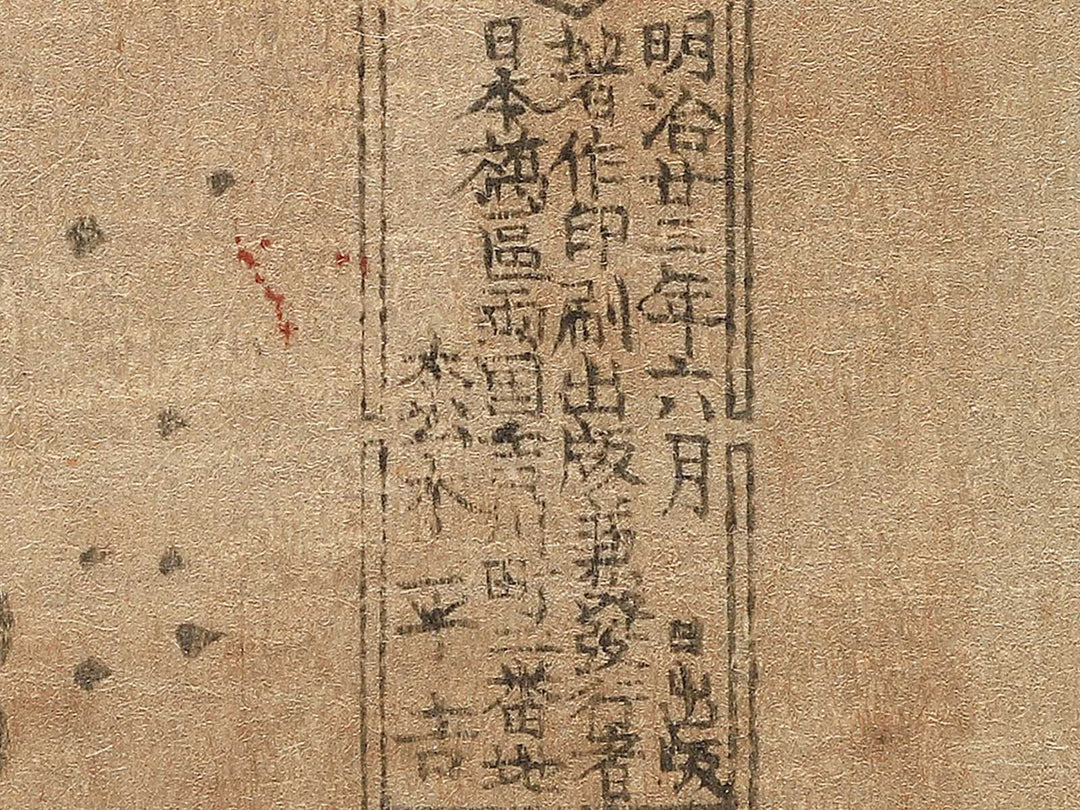 明治廿三年六月 日出版
著作印刷出版兼発行者
日本橋區両国吉川町二番地
松木平吉